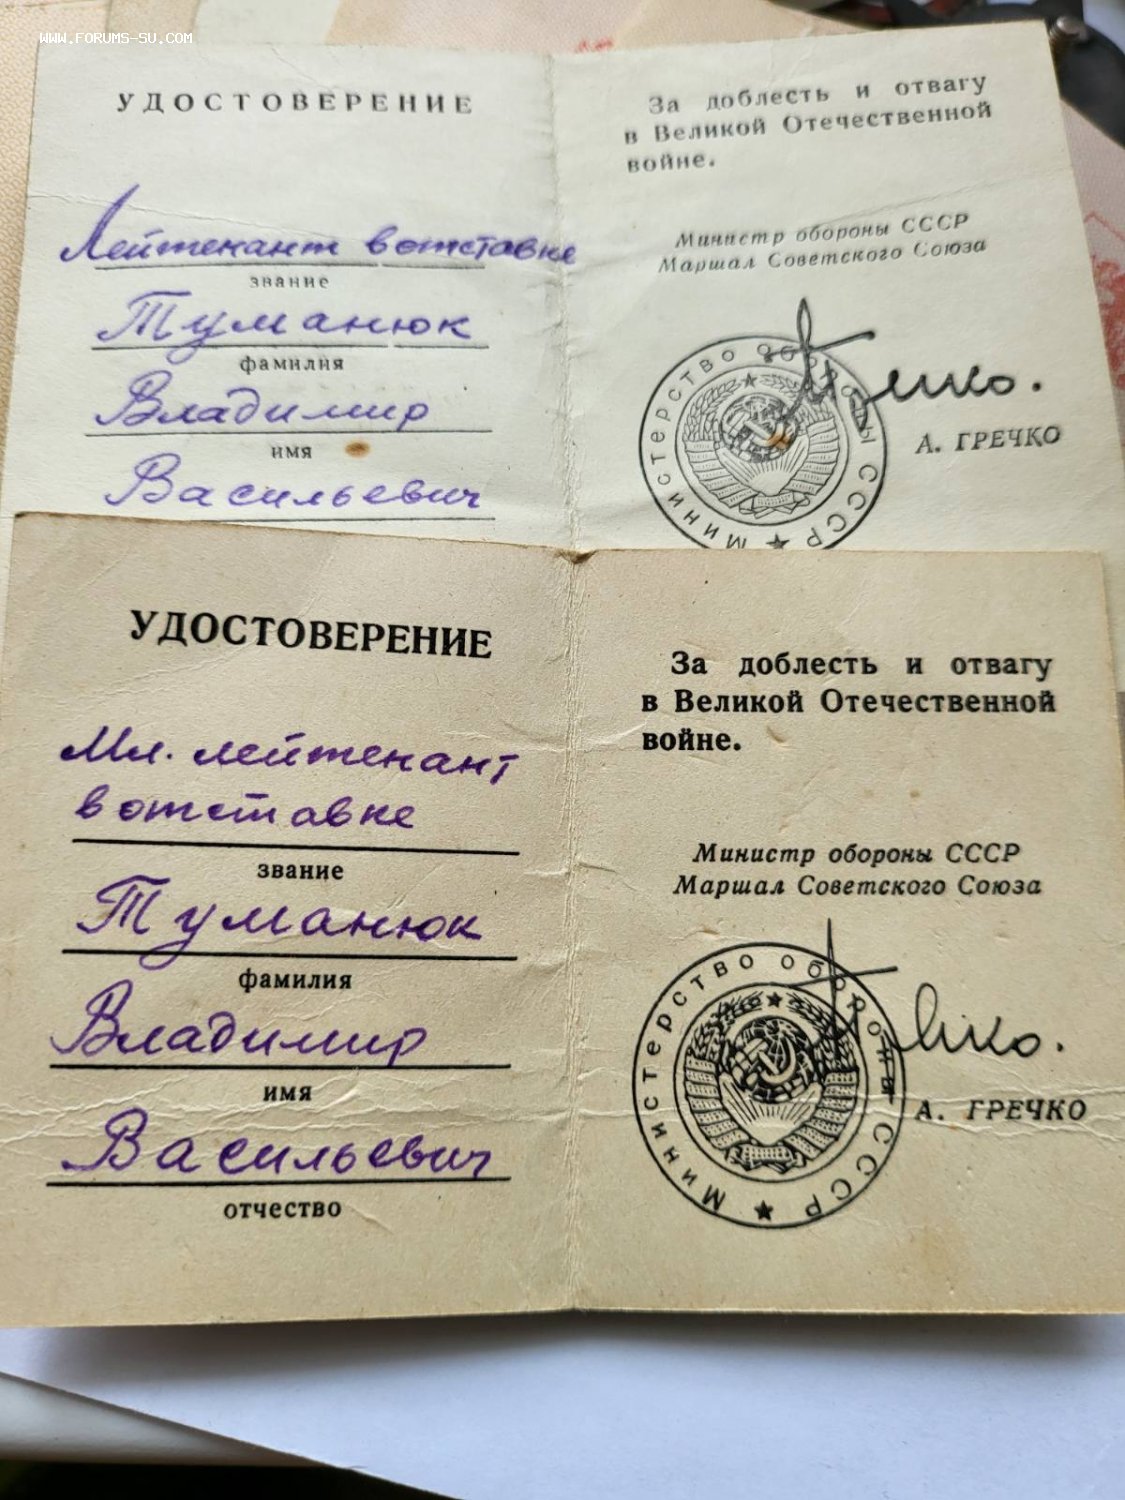 WWW.FORUMS-SU.COM
УДОСТОВЕРЕНИЕ
Лейтенант в отставке
звание
Туманюк
фамилия
Владимир
имя
Васильевич
За доблесть и отвагу
в Великой Отечественной
войне.
Министр обороны СССР
Маршал Советского Союза
Министерство обороны СССР
А. ГРЕЧКО
УДОСТОВЕРЕНИЕ
Мл. лейтенант
в отставке
звание
Туманюк
фамилия
Владимир
имя
Васильевич
отчество
За доблесть и отвагу
в Великой Отечественной
войне.
Министр обороны СССР
Маршал Советского Союза
Министерство обороны СССР
А. ГРЕЧКО